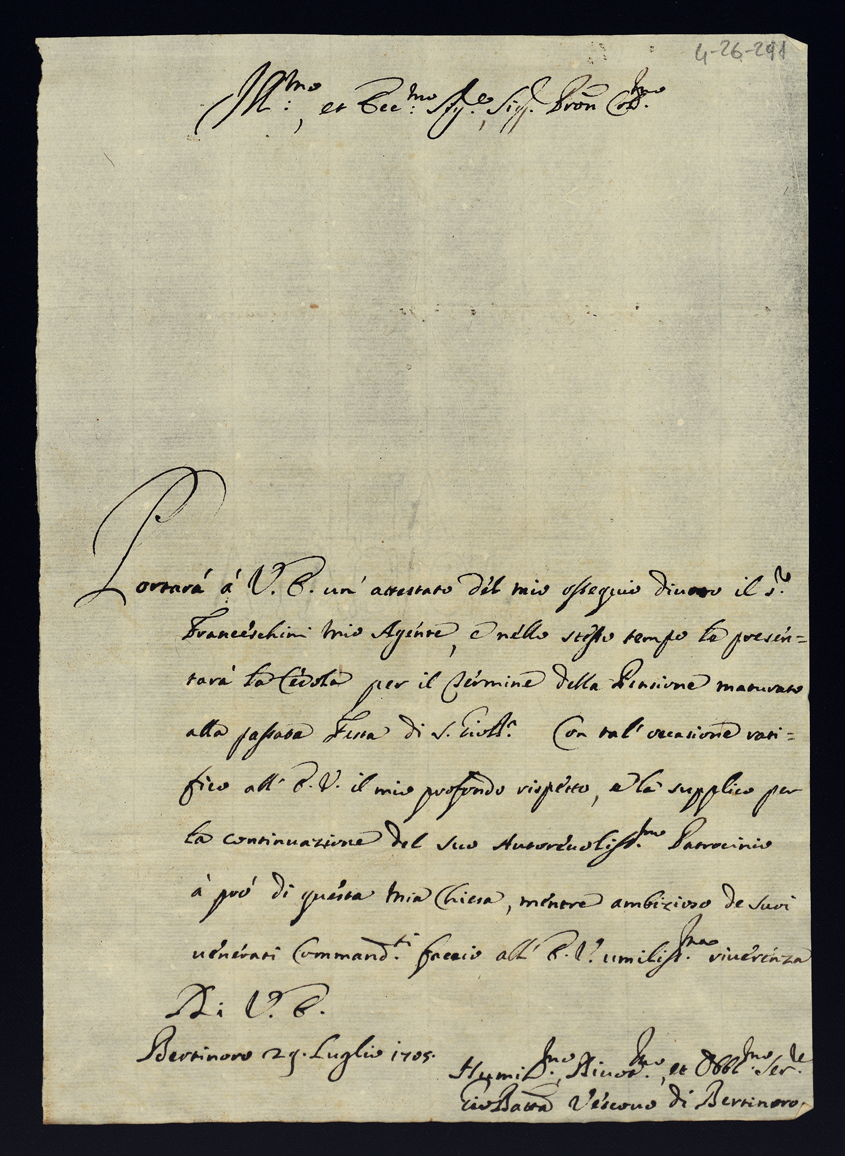 4-26-291
Ill:mo, et Ecc:mo Sig:re, Sig: Pron Col:mo
Portarà à V. E. un' attestato del mio ossequio diuoto il S.r
Franceschini mio Agente, e nello stesso tempo le presen=
tarà la Cedola per il termine della Pensione maturato
alla passata Festa di S. Gio: Con tal' occasione rati=
fico all' E. V. il mio profondo rispetto, e la supplico per
la continuazione del suo Autoreuoliss:mo Patrocinio
à prò di questa mia Chiesa, mentre ambizioso de suoi
uenerati Command:ti faccio all' E. V. umiliss:ma riuerenza
Di V. E.
Bertinoro 29. Luglio 1705.
Humil:mo, Diuot:mo, et Obbl:mo Ser:re
Gio Batta Vescouo di Bertinoro.